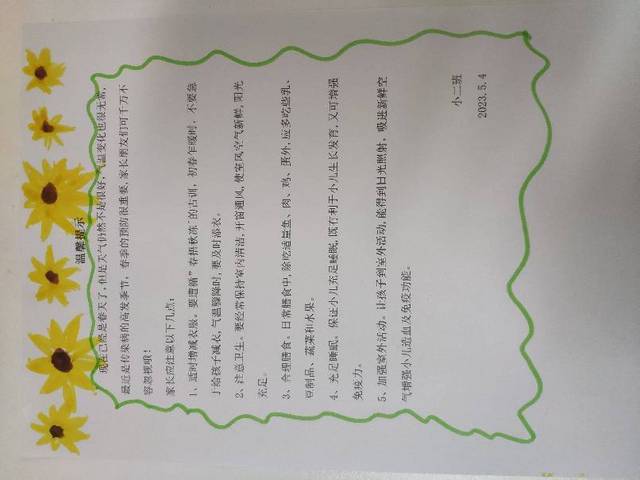 温馨提示
现在已经是春天了,但是天气仍然不是很好,气温变化也很无常,
最近是传染病的高发季节,春季的预防很重要,家长朋友们可千万不
容忽视哦!
家长应注意以下几点:
1、适时增减衣服。要遵循"春捂秋冻"的古训,初春乍暖时,不要急
于给孩子减衣,气温骤降时,要及时添衣。
2、注意卫生。要经常保持室内清洁,开窗通风,使室风空气新鲜,阳光
充足。
3、合理膳食。日常膳食中,除吃适量鱼、肉、鸡、蛋外,应多吃些乳、
豆制品、蔬菜和水果。
4、充足睡眠。保证小儿充足睡眠,既有利于小儿生长发育,又可增强
免疫力。
5、加强室外活动。让孩子到室外活动,能得到日光照射,吸进新鲜空
气增强小儿造血及免疫功能。
小二班
2023.5.4